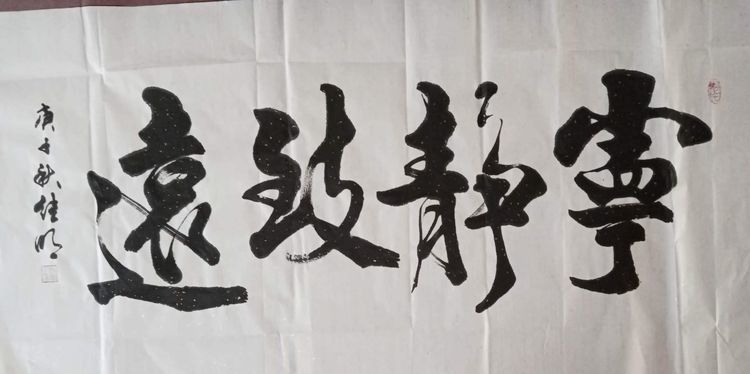 寧靜致遠
庚子秋佳明